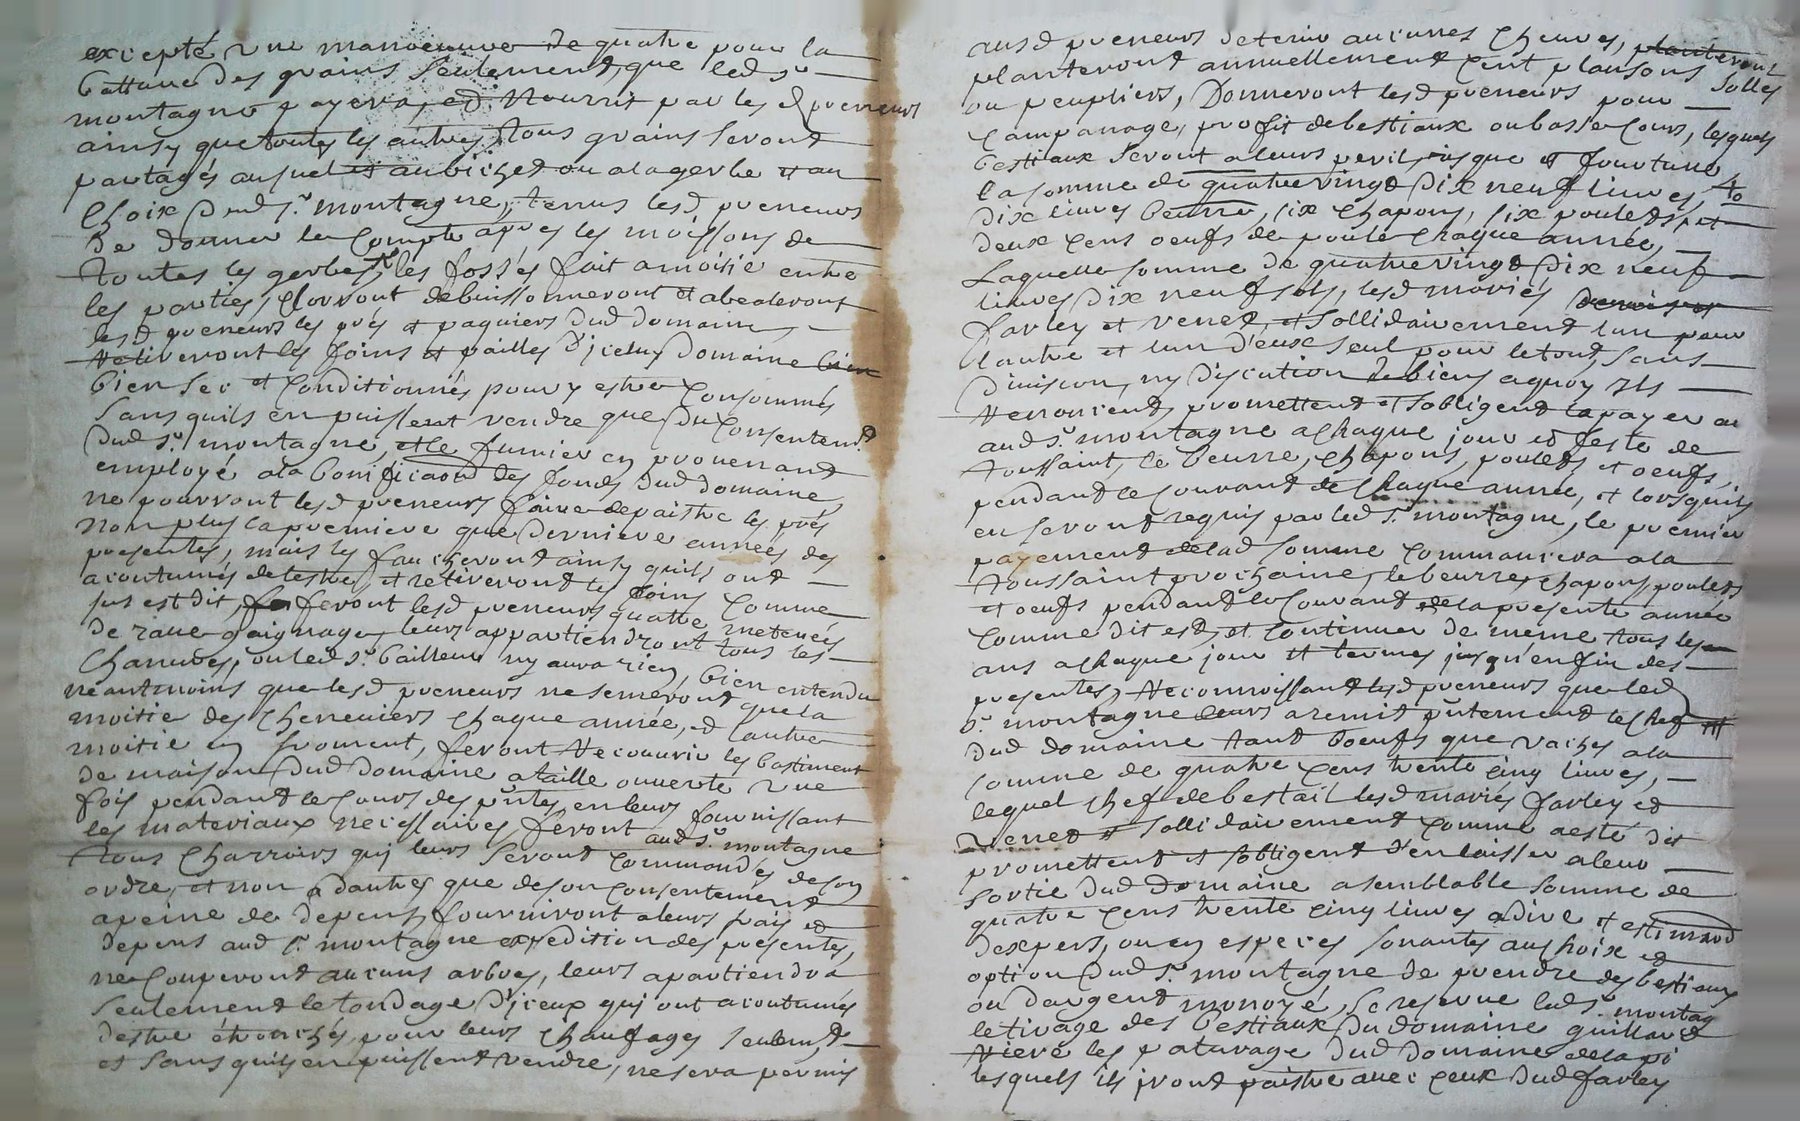 excepté une manoeuvre de quatre pour la
batture des grains seulement, que led sr
montagne payera, et nourrit par les d preneurs
ainsy que toutes les autres, tous grains seront
partagés au suel et au bichet ou a la gerbe et au
choix dud sr. montagne, tenus lesd preneurs
de donner le compte apres les moissons de
toutes les gerbes, les fossés fait a moisié entre
les parties, clorront debuissonneront et abealeront
lesd preneurs les prés et paquiers dud domaine,
Retireront les foins et pailles d'iceluy domaine bien
bien sec et conditionnés pour y estre consommés
sans quils en puissent vendre que du consentemt
dud sr. montagne, et le fumier en provenant
employé a la bonificaon des fonds dud domaine,
ne pourront lesd preneurs faire depaistre les prés
non plus la premiere que derniere années des
presentes, mais les faucheront ainsy quils ont
acoutumés de lestre, et retireront les foins comme
sus est dit, feront lesd preneurs quatre meterées
de raue gaignage, leurs appartiendront tous les
chanures, ou led sr. bailleur ny aura rien, bien entendu
neantmoins que lesd preneurs ne semeront que la
moitie des cheneviers chaque année, et l'autre
moitie en froment, feront Recouvrir les bastiment
de maison dud domaine a taille ouverte une
fois pendant le cours des pntes, en leurs fournissant
les materiaux necessaires, feront aud sr. montagne
tous charroirs qui leurs seront commandés de son
ordre, et non a dautres que de son consentement
a peine de depens, fourniront a leurs frais et
depens aud sr. montagne expedition des presentes,
ne couperont aucuns arbres, leurs apartiendra
seulement le tondage d'iceux qui ont acoutumés
destre étronchés, pour leurs chaufages seulemt,
et sans quils en puissent vendre, ne sera permis
ausd preneurs de tenir aucunes cheures, planteront
planteront annuellement cent plansons solles
ou peupliers, Donneront lesd preneurs pour
campanage, profit de bestiaux ou basse cour, lesquels
bestiaux seront a leurs peril, risque et fourtune
la somme de quatre vingt dix neuf liures,
dix liures beurre, six chapons, six poulets, et
deux cens oeufs de poule chaque année,
Laquelle somme de quatre vingt dix neuf
liures dix neuf sols, lesd mariés
farley et venet, et sollidairement lun pour
lautre et lun d'eux seul pour le tout, sans
diuision, ny discution de biens a quoy ils
Renoncent, promettent et s'obligent la payer au
aud sr. montagne a chaque jour et feste de
toussaint, le beurre, chapons, poulets et oeufs,
pendant le courant de chaque année, et lorsquils
en seront requis par led sr. montagne, le premier
payement de lad somme commancera a la
toussaint prochaine, le beurre, chapons, poulets
et oeufs pendant le courant de la presente année
comme dit est, et continuer de meme tous les
ans a chaque jour et termes jusqu'en fin des
presentes, Reconnoissant lesd preneurs que led
sr. montagne leurs a remit pntement le chef
dud domaine tant boeufs que vaches a la
somme de quatre cens trente cinq liures,
lequel chef de bestail lesd mariés farley et
venet et sollidairement comme a esté dit
promettent et s'obligent d'en laisser a leur
sortie dud domaine a semblable somme de
quatre cens trente cinq liures a dire et estimaon
dexpers, ou en especes sonantes au choix et
option dud sr. montagne de prendre des bestiaux
ou dargent monoyé, se reserue led sr. montag
le tirage des bestiaux du domaine guillard
les paturage dud domaine de la pi
lesquels ils iront paistre auec ceux dud farley